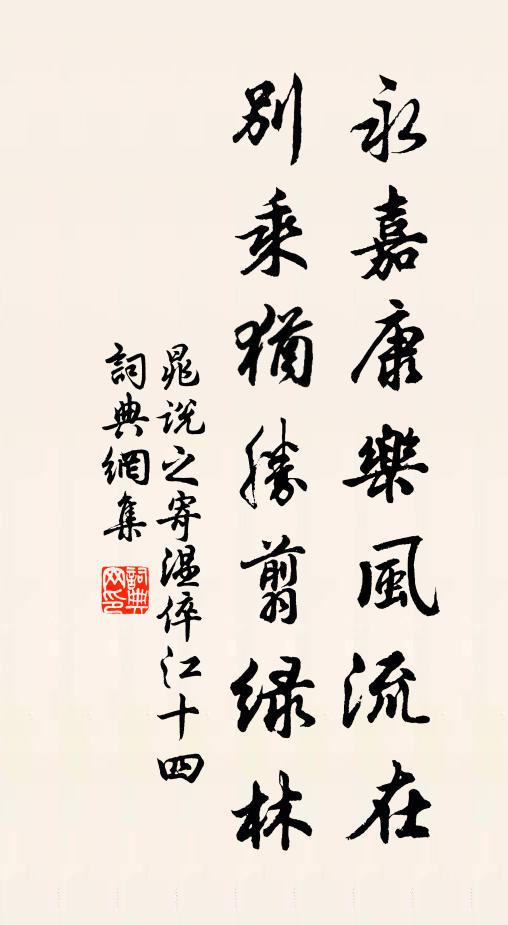 永嘉康樂風流在
別乘猶勝翦綠林
晁說之寄溫倅江十四
詞典網集
詞典网印